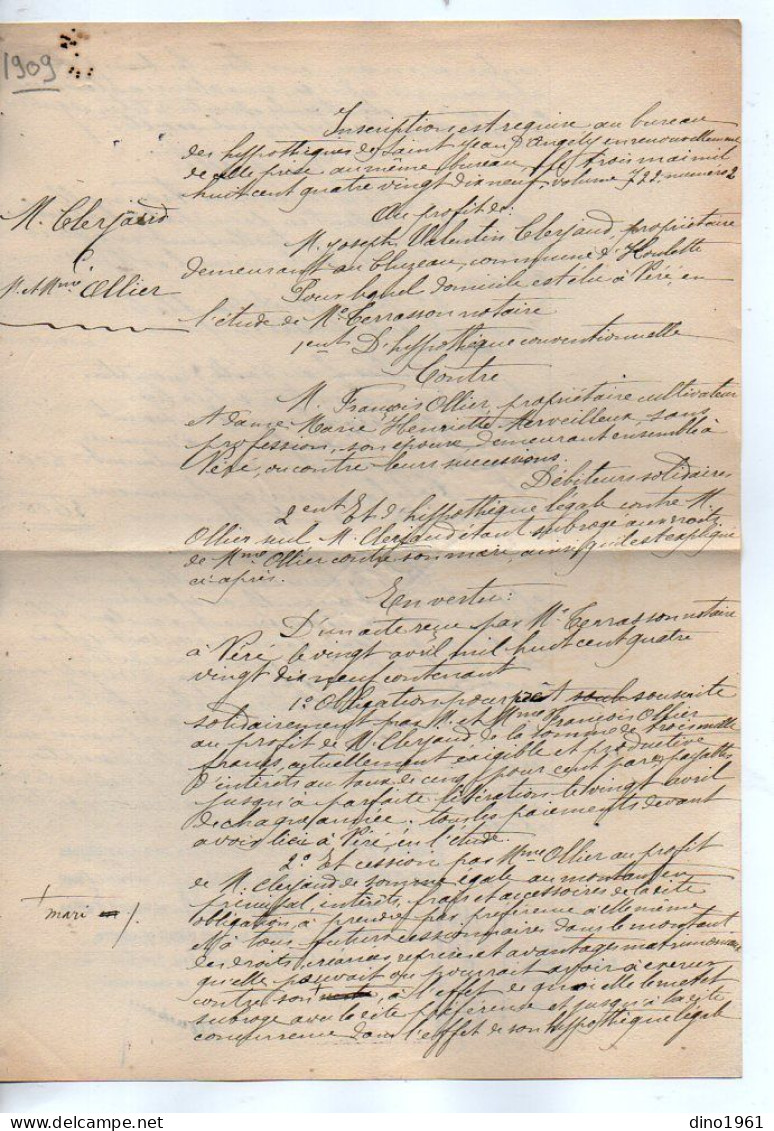 1909
Inscription est requise au bureau
des hypothèques de Saint Jean d'Angély en renouvellement
de celle prise au même bureau, le trois mai mil
huit cent quatre vingt dix neuf, volume 722, numéro 2
Au profit de:
M. Clerjaud
M. Joseph Valentin Clerjaud, propriétaire
demeurant au Cluzeau, commune d'Houlette
C
M. et Mme Ollier
Pour lequel domicile est élu à Véré, en
l'étude de Me Terrasson notaire
1ent D'hypothèque conventionnelle
Contre
M. François Ollier, propriétaire cultivateur
et dame Marie Henriette Merveilleux, sans
profession, son épouse, demeurant ensemble à
Véré, ou contre leurs successions.
Débiteurs solidaires
2ent Et d'hypothèque légale contre M.
Ollier seul M. Clerjaud étant subrogé aux droits
de Mme Ollier contre son mari, ainsi qu'il est expliqué
ci-après.
En vertu:
D'un acte reçu par Me Terrasson notaire
à Véré, le vingt avril mil huit cent quatre
vingt dix neuf contenant
1o Obligation pour prêt souscrite
solidairement par M. et Mme François Ollier
au profit de M. Clerjaud de la somme de trois mille
francs, actuellement exigible et productive
d'intérêts au taux de cinq pour cent par an, payables
jusqu'à parfaite libération le vingt avril
de chaque année, tous les paiements devant
avoir lieu à Véré, en l'étude.
2o Et cession par Mme Ollier au profit
de M. Clerjaud de somme égale au montant en
principal, intérêts, frais et accessoires de la dite
obligation, à prendre par préférence à elle même
et à tous futurs cessionnaires dans le montant
des droits, créances, reprises et avantages matrimoniaux
qu'elle pouvait ou pourrait avoir à exercer
mari
contre son, à l'effet de quoi elle le met et
subroge avec la dite préférence et jusqu'à la dite
concurrence dans l'effet de son hypothèque légale
dino1961